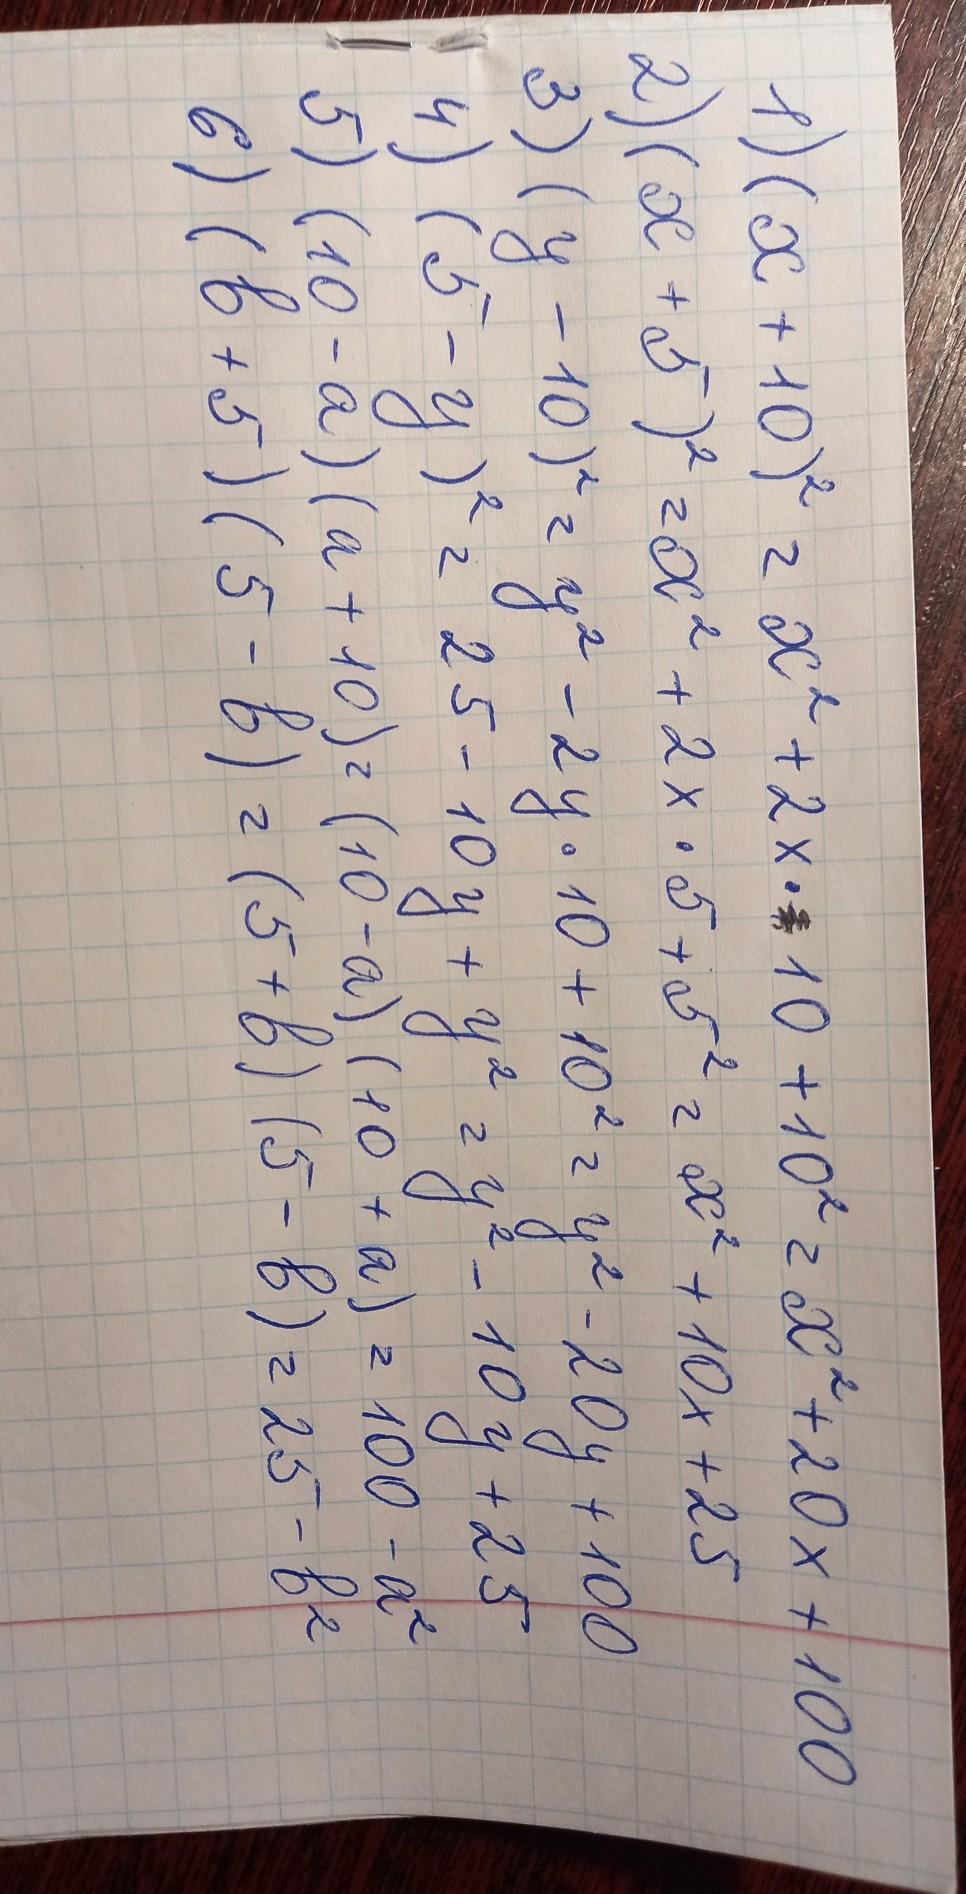 1) (x + 10)² = x² + 2x · 10 + 10² = x² + 20x + 100
2) (x + 5)² = x² + 2x · 5 + 5² = x² + 10x + 25
3) (y - 10)² = y² - 2y · 10 + 10² = y² - 20y + 100
4) (5 - y)² = 25 - 10y + y² = y² - 10y + 25
5) (10 - a) (a + 10) = (10 - a) (10 + a) = 100 - a²
6) (b + 5) (5 - b) = (5 + b) (5 - b) = 25 - b²